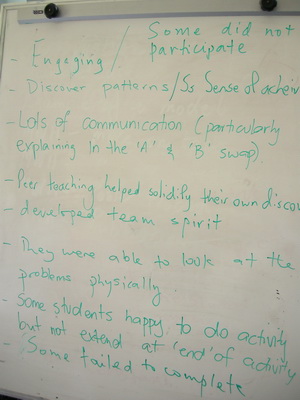 Some did not
- Engaging / participate
- Discover patterns / Ss Sense of acheiv
- Lots of communication (particularly
explaining in the 'A' & 'B' swap).
- Peer teaching helped solidify their own discov
- developed team spirit
- They were able to look at the
problems physically
- Some students happy to do activity
but not extend at 'end' of activity
- Some failed to complete